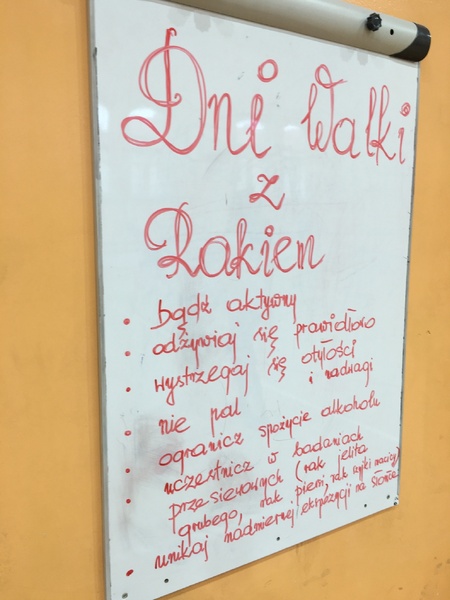 Dni Walki
z
Rakiem
• bądź aktywny
• odżywiaj się prawidłowo
• wystrzegaj się otyłości
i nadwagi
• nie pal
• ogranicz spożycie alkoholu
• uczestnicz w badaniach
przesiewowych (rak jelita
grubego, rak piersi, rak szyjki macicy)
• unikaj nadmiernej ekspozycji na słońce